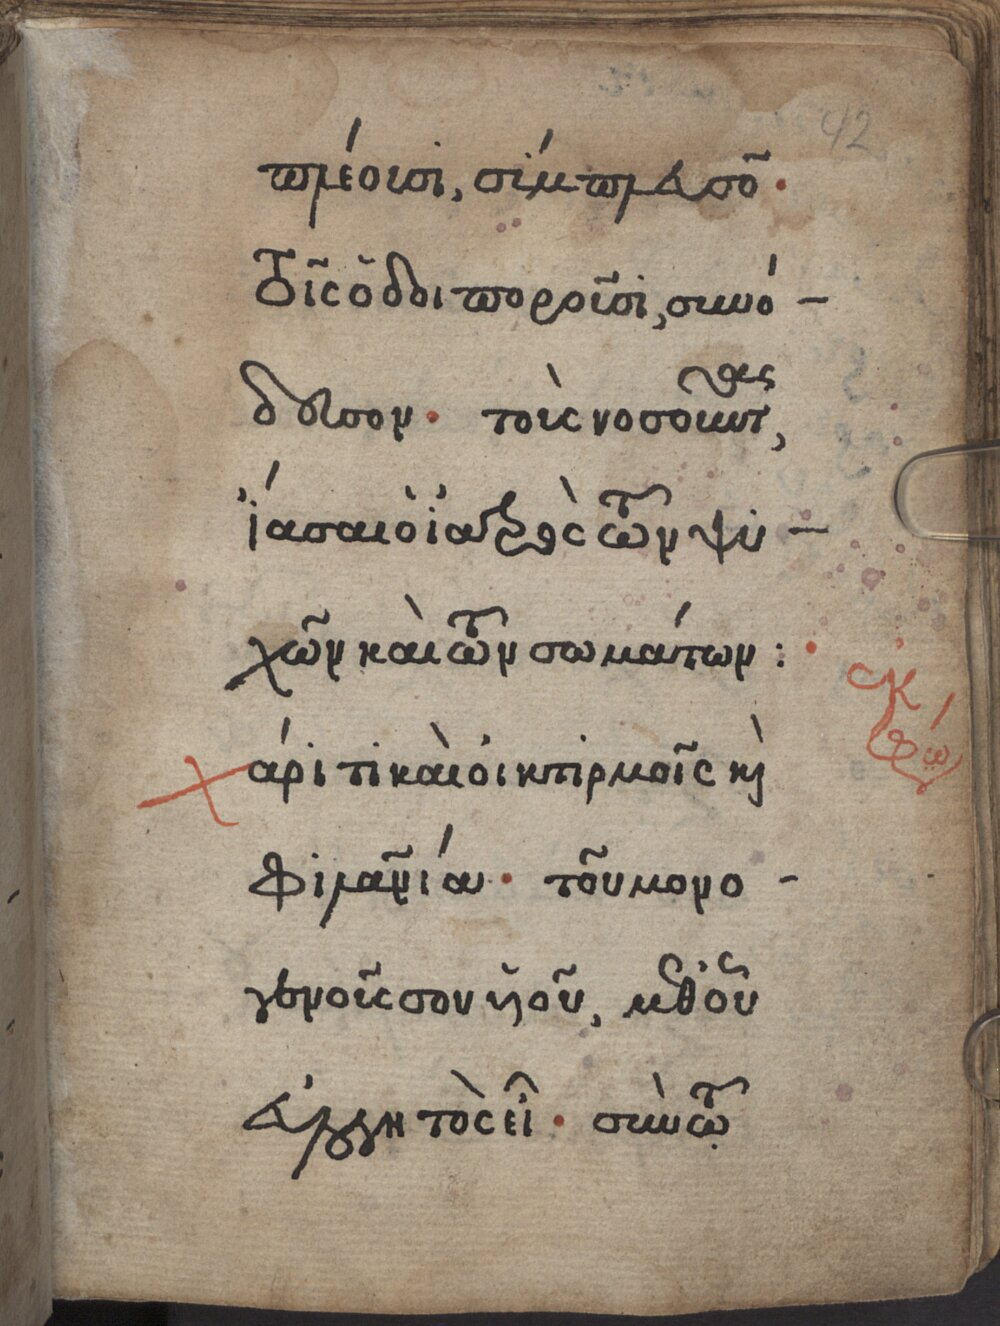 42
πλέουσι, σύμπλευσον·
τοῖς ὁδοιποροῦσι, συνό-
δευσον· τοὺς νοσοῦντας,
ἴασαι ὁ ἰατρὸς τῶν ψυ-
χῶν καὶ τῶν σωμάτων:
ἐκφώ
Χάριτι καὶ οἰκτιρμοῖς κὶ
φιλανίαι· τοῦ μονο-
γενοῦς σου υἱοῦ, μεθ' οὗ
εὐλογητὸς εἶ· σὺν τῶ